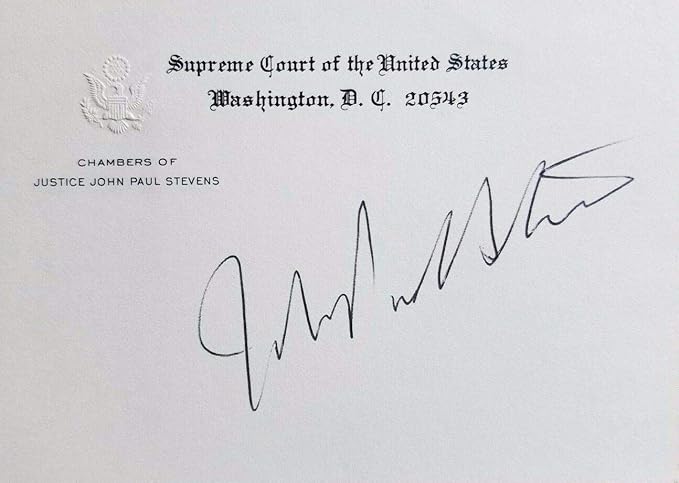 Supreme Court of the United States
Washington, D. C. 20543
CHAMBERS OF
JUSTICE JOHN PAUL STEVENS
John Paul Stevens